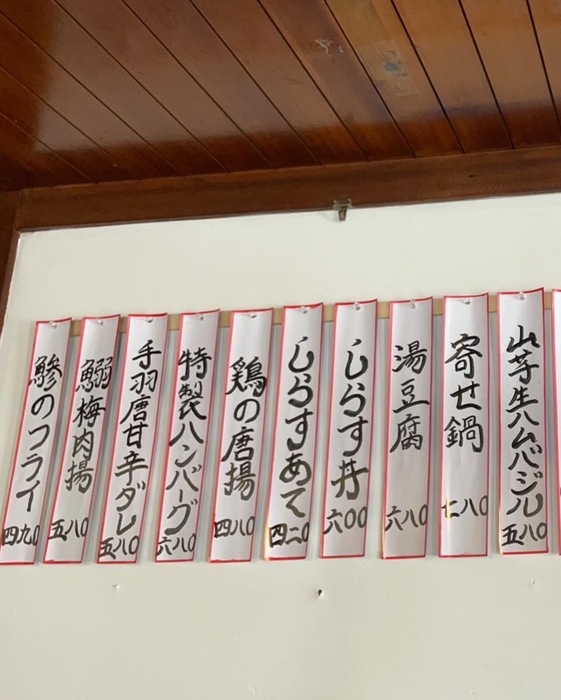 山芋生ハムバジル 五八〇
寄せ鍋 七八〇
湯豆腐 六八〇
しらす丼 六〇〇
しらすあて 四二〇
鶏の唐揚 四八〇
特製ハンバーグ 六八〇
手羽唐甘辛ダレ 五八〇
鰯梅肉揚 五八〇
鯵のフライ 四九〇